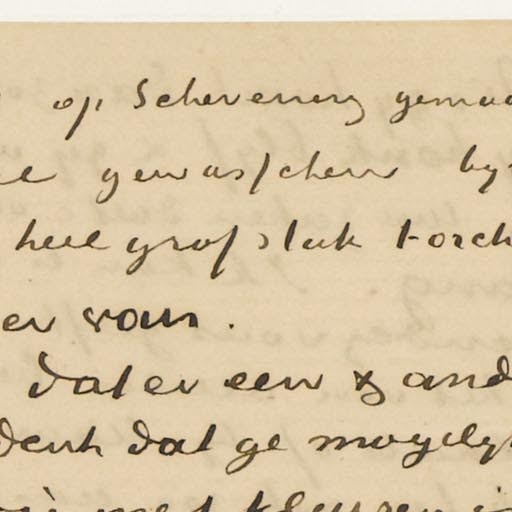 op Schevening gemaa
gewasschen by
heel grof stuk torch
er van.
dat er een zand
denk dat ge mogelyk
met kleuren